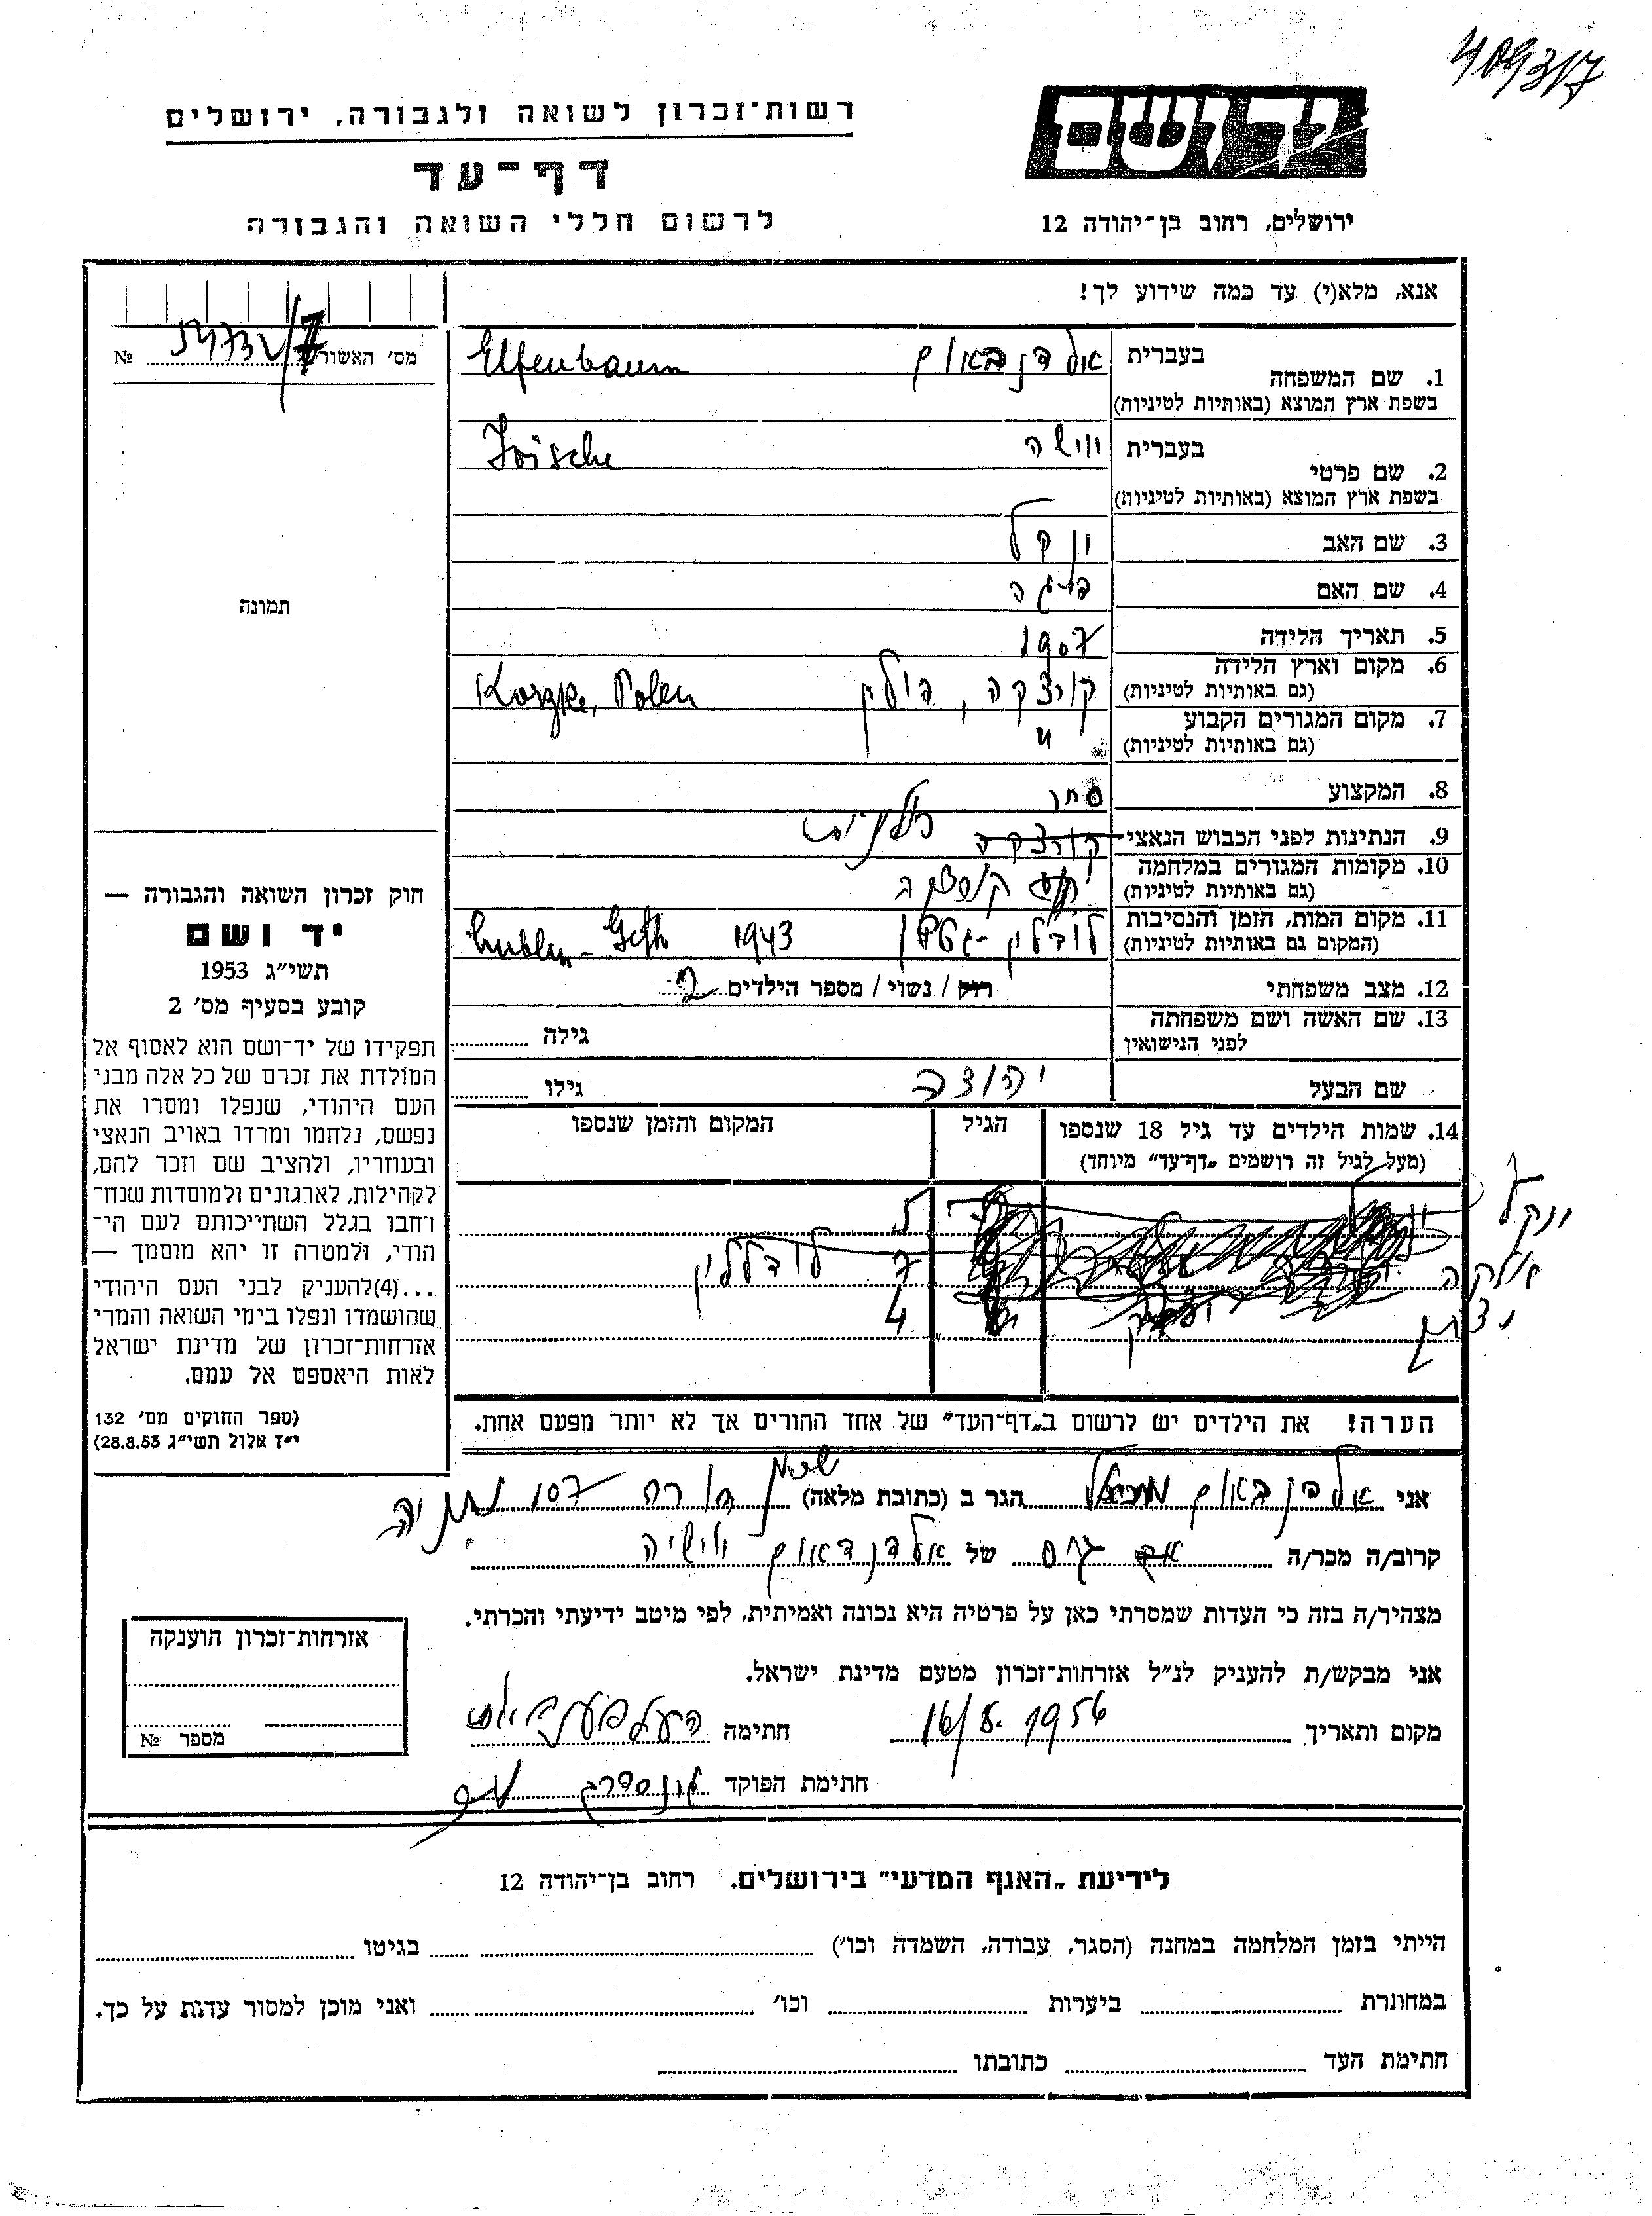 409317
רשות־זכרון לשואה ולגבורה, ירושלים
דף־עד
לרשום חללי השואה והגבורה
יד ושם
ירושלים, רחוב בן־יהודה 12
אנא, מלא(י) עד כמה שידוע לך!
מס׳ האשור №
1. שם המשפחה
בעברית
Elfenbaum
בשפת ארץ המוצא (באותיות לטיניות)
2. שם פרטי
בעברית
בשפת ארץ המוצא (באותיות לטיניות)
3. שם האב ינקל
4. שם האם פיגה
5. תאריך הלידה 1907
6. מקום וארץ הלידה
(גם באותיות לטיניות) קורצקה, פולין
7. מקום המגורים הקבוע
(גם באותיות לטיניות) "
8. המקצוע סחר
9. הנתינות לפני הכבוש הנאצי
10. מקומות המגורים במלחמה
(גם באותיות לטיניות)
11. מקום המות, הזמן והנסיבות
(המקום גם באותיות לטיניות) לובלין - גטו 1943
12. מצב משפחתי רוק / נשוי / מספר הילדים 2
13. שם האשה ושם משפחתה
לפני הנישואין גילה
שם הבעל גילו
14. שמות הילדים עד גיל 18 שנספו הגיל המקום והזמן שנספו
(מעל לגיל זה רושמים „דף־עד" מיוחד)
ינקל
7 לובלין
4
הערה! את הילדים יש לרשום ב„דף־העד" של אחד ההורים אך לא יותר מפעם אחת.
תמונה
חוק זכרון השואה והגבורה —
יד ושם
תשי״ג 1953
קובע בסעיף מס׳ 2
תפקידו של יד־ושם הוא לאסוף אל
המולדת את זכרם של כל אלה מבני
העם היהודי, שנפלו ומסרו את
נפשם, נלחמו ומרדו באויב הנאצי
ובעוזריו, ולהציב שם וזכר להם,
לקהילות, לארגונים ולמוסדות שנח־
רחבו בגלל השתייכותם לעם הי־
הודי, ולמטרה זו יהא מוסמך —
...(4)להעניק לבני העם היהודי
שהושמדו ונפלו בימי השואה והמרי
אזרחות־זכרון של מדינת ישראל
לאות היאספם אל עמם.
(ספר החוקים מס׳ 132
י״ז אלול תשי״ג 28.8.53)
אני אלפנבאום הגר ב (כתובת מלאה) שכון דורה 107 נתניה
קרוב/ה מכר/ה של אלפנבאום
מצהיר/ה בזה כי העדות שמסרתי כאן על פרטיה היא נכונה ואמיתית, לפי מיטב ידיעתי והכרתי.
אני מבקש/ת להעניק לנ״ל אזרחות־זכרון מטעם מדינת ישראל.
מקום ותאריך חתימה
חתימת הפוקד
אזרחות־זכרון הוענקה
מספר №
לידיעת „האגף המדעי" בירושלים. רחוב בן־יהודה 12
הייתי בזמן המלחמה במחנה (הסגר, עבודה, השמדה וכו׳) בגיטו
במחתרת ביערות וכו׳ ואני מוכן למסור עדות על כך.
חתימת העד כתובתו